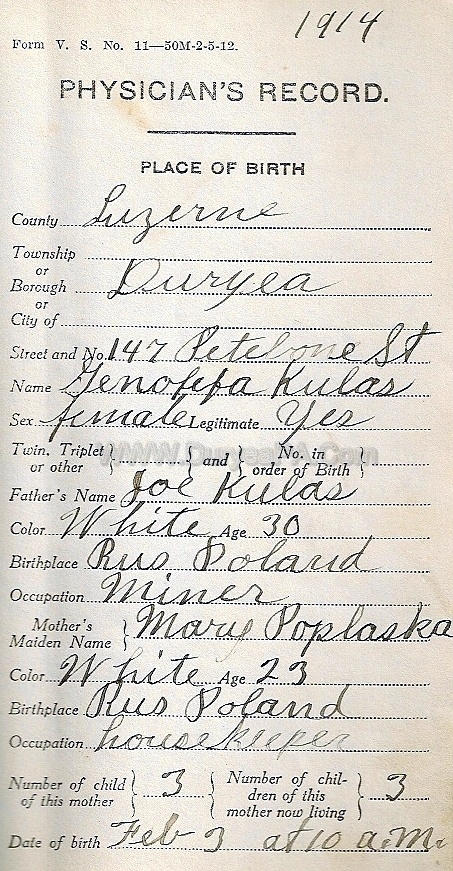 1914
Form V. S. No. 11—50M-2-5-12.
PHYSICIAN'S RECORD.
PLACE OF BIRTH
County Luzerne
Township
or
Borough Duryea
or
City of
Street and No. 147 Petebone St
Name Genofefa Kulas
Sex female Legitimate Yes
Twin, Triplet or other } { and { No. in order of Birth }
WWW.DuryeaPA.Com
Father's Name Joe Kulas
Color White Age 30
Birthplace Rus Poland
Occupation Miner
Mother's Maiden Name } Mary Poplaska
Color White Age 23
Birthplace Rus Poland
Occupation housekeeper
Number of child of this mother } 3 { Number of children of this mother now living } 3
Date of birth Feb 3 at 10 a.m.